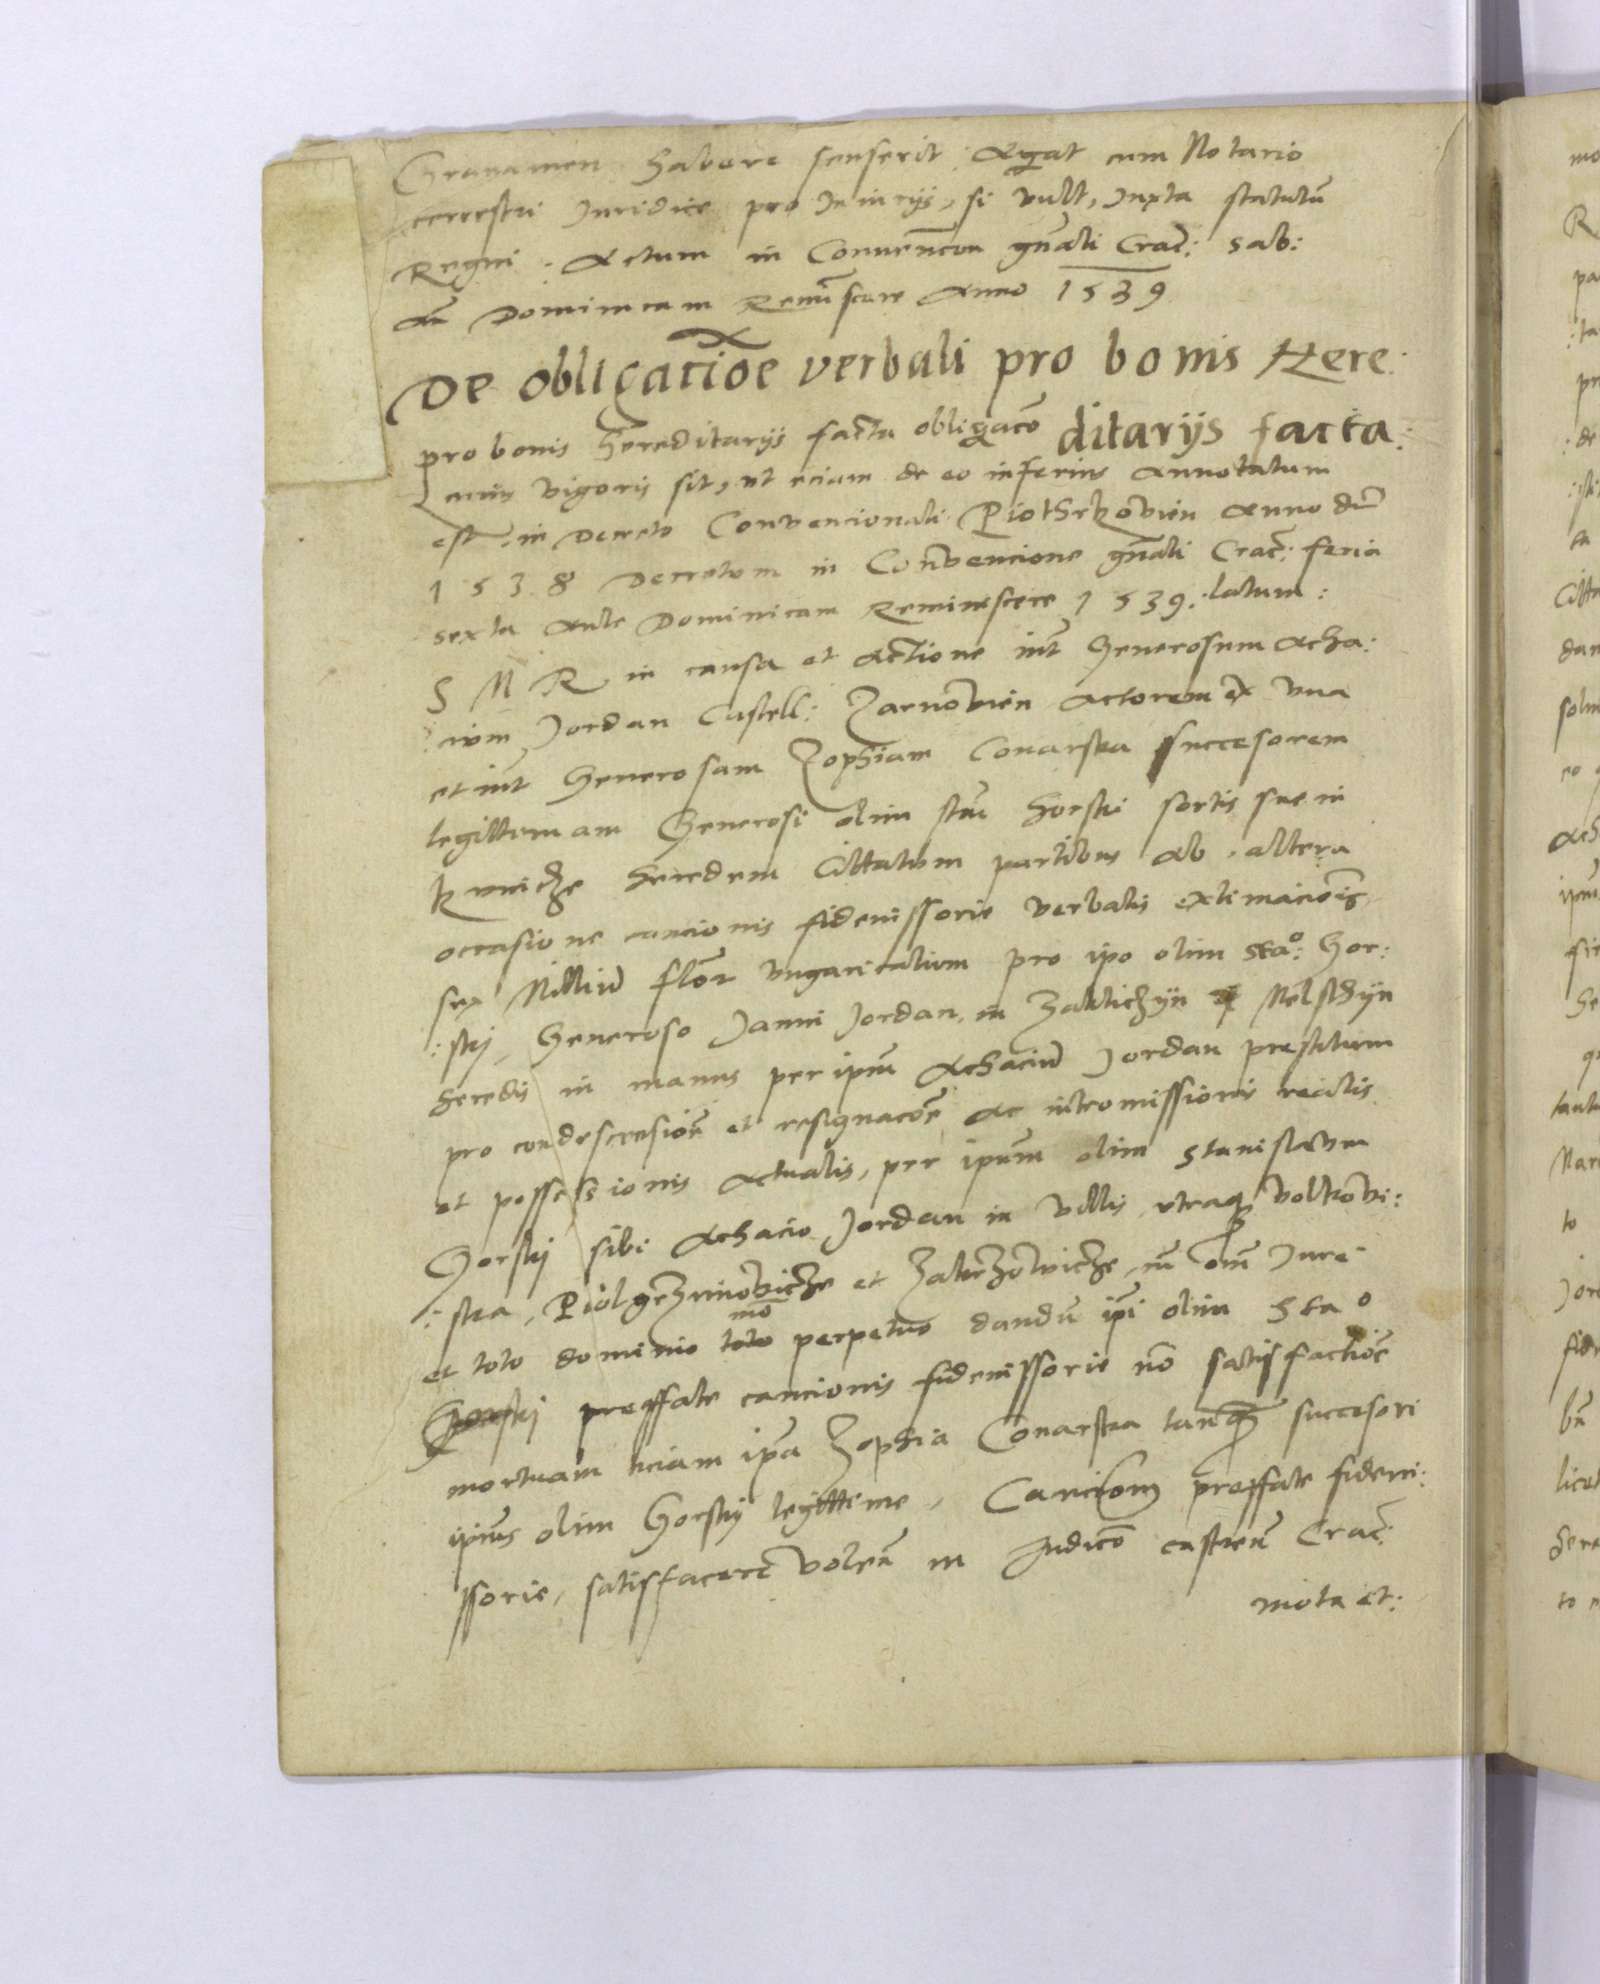 Gravamen habere senserit Agat cum Notario
terrestri Iuridice pro Iniuriis, si vult, Iuxta statutū
Regni. Actum in Convencōn gn̄ali Crac̄: sab:
An̄ Dominicam Remīscere Anno 1539
De obligaciōe verbali pro bonis Here:
ditariis facta:
pro bonis hereditariis facta obligacō
cuius vigoris sit, ut eciam de eo inferius Annotatum
est, in Decreto Convencionali Piothrkovien̄ Anno dn̄i
1538 Decretum in Convencione gn̄ali Crac̄: feria
sexta Ante Dominicam Reminiscere 1539. latum:
S M R in causa et Actione int̄ Generosum Acha:
:cium Jordan Castell: Zarnovien̄ Actorem ex una
et int̄ Generosam Zophiam Conarska succesorem
legittimam Generosi olim stn̄i Gorski sortis sue in
heredem Cittatum partibus Ab altera
occasione caucionis fideiussorie verbalis extimaciōis
sex Milliū flōr ungaricalium pro ipo olim Staº: Gor:
:skij, Generoso Janni Jordan, in Zaklichijn Melsthijn
heredis in manus per ip̄um Achaciū Jordan prestitum
pro condescensiōe et resignacōe Ac intromissionis realis
et possessionis Actualis, per ip̄um olim Stanislaum
Gorskij sibi Achacio Jordan in villis utraq volkovi:
:ska, Piolgrzimovicze et Zakrzovicze, cū om̄i Iure
et toto dominio toto mō perpetuo dandū ip̄i olim Staº
Gorskij preffate caucionis fideiussorie nō satisfactiōe
mortuam eciam ip̄a Zophia Conarska tanq̄ succesori
ip̄ius olim Gorskij legittime, Caucioni preffate fideiu:
ssorie, satisfacere volen̄ in Iudicō castren̄ Crac̄:
mota et: